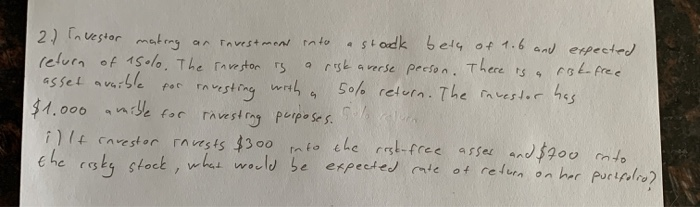 2.) Investor making an investment into a stodk beta of 1.6 and expected
return of 15%. The investor is a risk averse person. There is a risk-free
asset avaible for investing with a 5% return. The investor has
$1.000 avaible for investing purposes.
i) If investor invests $300 into the risk-free asset and $700 into
the risky stock, what would be expected rate of return on her portfolio?